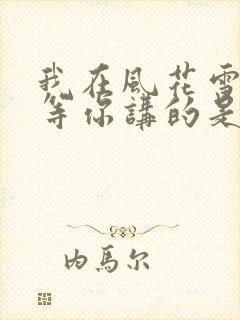 我在風花雪
等你講的是
内馬尔